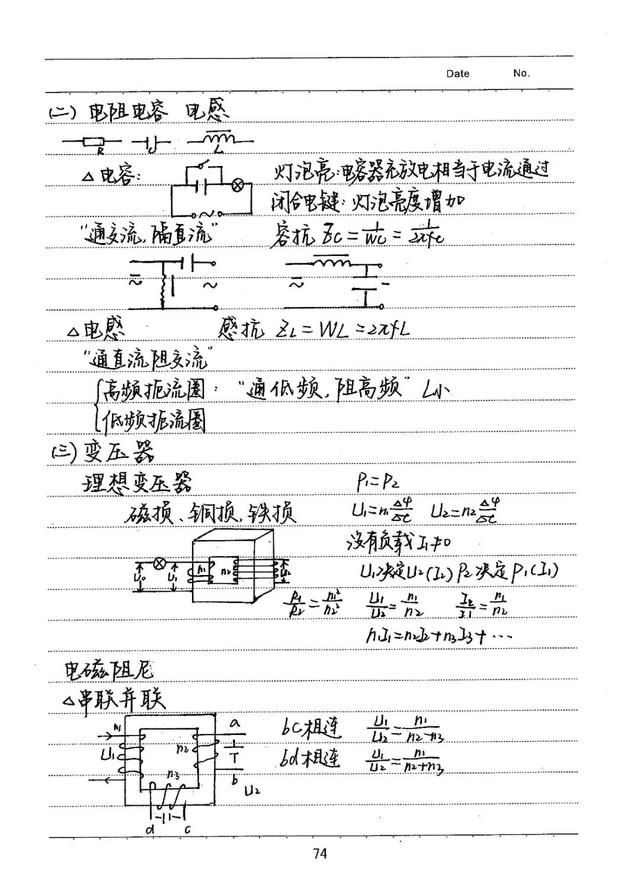 Date No.
(二) 电阻电容 电感
R C L
△电容: 灯泡亮:电容器充放电相当于电流通过
闭合电键:灯泡亮度增加
"通交流,隔直流" 容抗 Zc=1/WC=1/2πfc
△电感 感抗 ZL=WL=2πfL
"通直流阻交流"
高频扼流圈:"通低频,阻高频" L小
低频扼流圈
(三) 变压器
理想变压器 P1=P2
磁损、铜损、铁损 U1=n1 Δφ/Δt U2=n2 Δφ/Δt
没有负载 I1≠0
U0 U1 n1 n2 U1决定U2(I2) P2决定P1(I1)
R1/R2=n1²/n2² U1/U2=n1/n2 I2/I1=n1/n2
n1I1=n2I2+n3I3+…
电磁阻尼
△串联并联
n1 U1 n2 n3 a b U2 d c
bc相连 U1/U2=n1/n2-n3
bd相连 U1/U2=n1/n2+n3
74